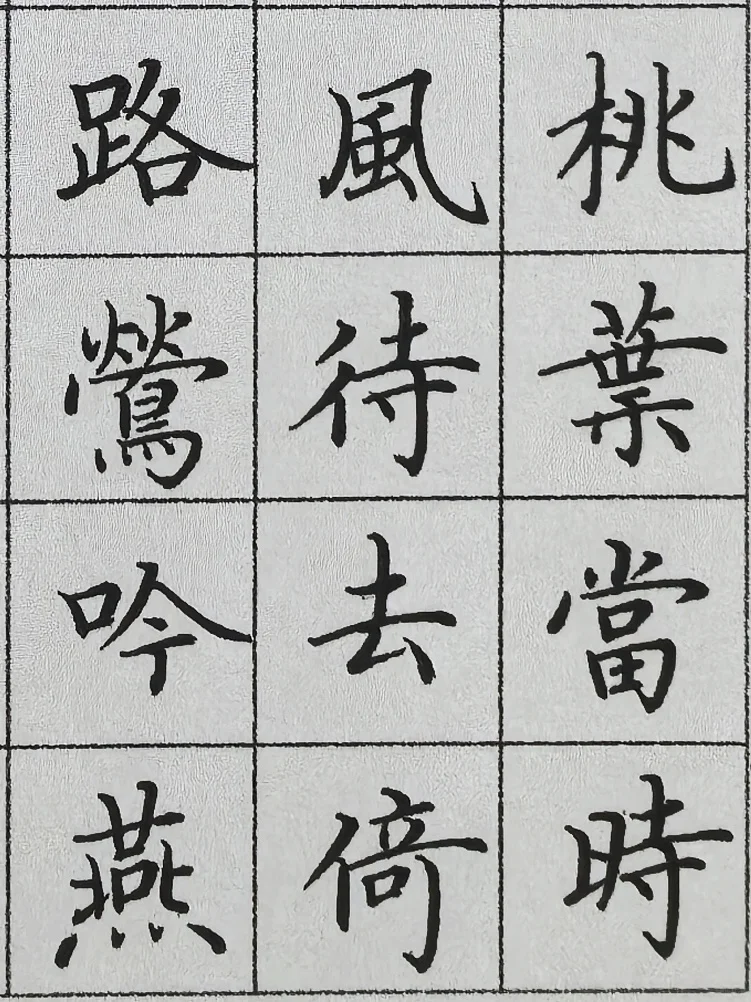 桃葉當時
風待去倚
路鶯吟燕